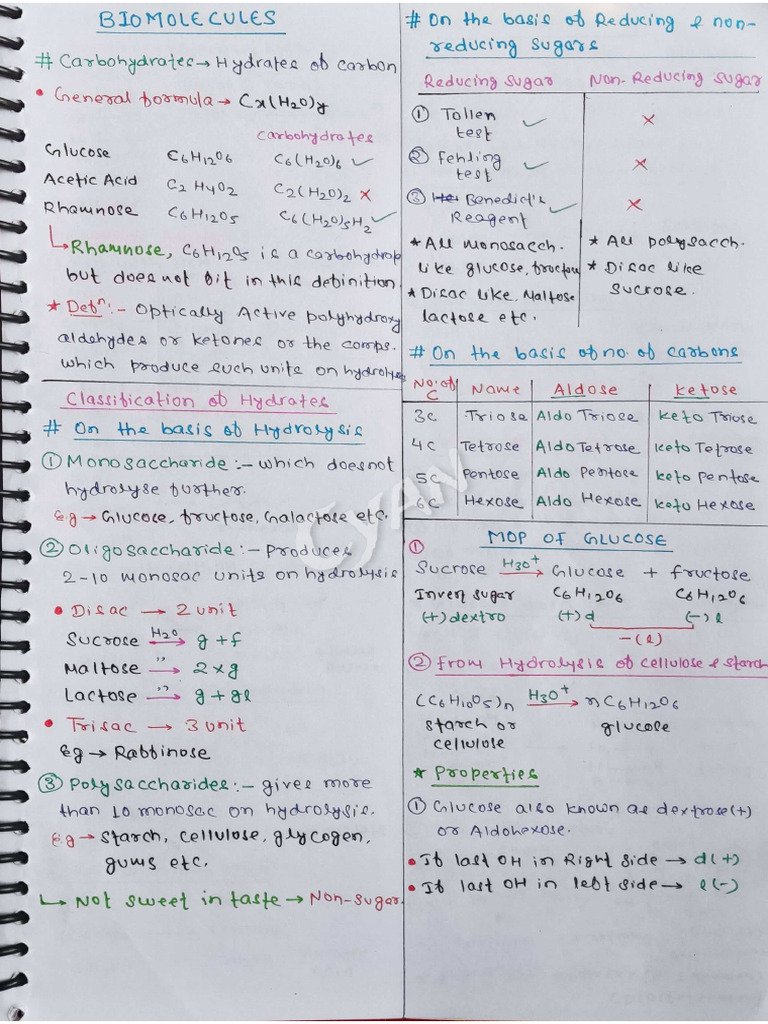 BIOMOLECULES
# Carbohydrates → Hydrates of carbon
• General formula → Cx(H2O)y
Carbohydrates
Glucose C6H12O6 C6(H2O)6 ✓
Acetic Acid C2H4O2 C2(H2O)2 ×
Rhamnose C6H12O5 C6(H2O)5H2 ✓
↳ Rhamnose, C6H12O5 is a carbohydra
but does not fit in this definition
* Defn :- Optically Active polyhydroxy
aldehydes or ketones or the comps.
which produce such units on hydrolysis
Classification of Hydrates
# On the basis of Hydrolysis
① Monosaccharide :- which doesnot
hydrolyse further.
E.g → Glucose, fructose, Galactose etc.
② Oligosaccharide :- Produces
2-10 monosac units on hydrolysis
• Disac → 2 unit
Sucrose H2O→ g + f
Maltose "→ 2 x g
Lactose "→ g + gl
• Trisac → 3 unit
Eg → Raffinose
③ Polysaccharides :- gives more
than 10 monosac on hydrolysis.
E.g → Starch, cellulose, glycogen,
gums etc.
↳ Not sweet in taste → Non-sugar.
# On the basis of Reducing & non-
reducing sugars
Reducing sugar Non-Reducing sugar
① Tollen ✓ ×
test
② Fehling ✓ ×
test
③ Benedict's ✓ ×
Reagent
* All monosacch. * All polysacch.
like glucose, fructou * Disac like
* Disac like, Maltose sucrose.
lactose etc.
# On the basis of no. of carbons
No. of C Name Aldose Ketose
3C Triose Aldo Triose Keto Triose
4C Tetrose Aldo Tetrose Keto Tetrose
5C Pentose Aldo Pentose Keto Pentose
6C Hexose Aldo Hexose Keto Hexose
MOP OF GLUCOSE
① Sucrose H3O+→ Glucose + fructose
Invert sugar C6H12O6 C6H12O6
(+) dextro (+) d (-) l
-(l)
② from Hydrolysis of cellulose & starch
(C6H10O5)n H3O+→ nC6H12O6
starch or glucose
cellulose
* Properties
① Glucose also known as dextrose(+)
or Aldohexose.
• If last OH in Right side → d(+)
• If last OH in left side → l(-)
CYAN